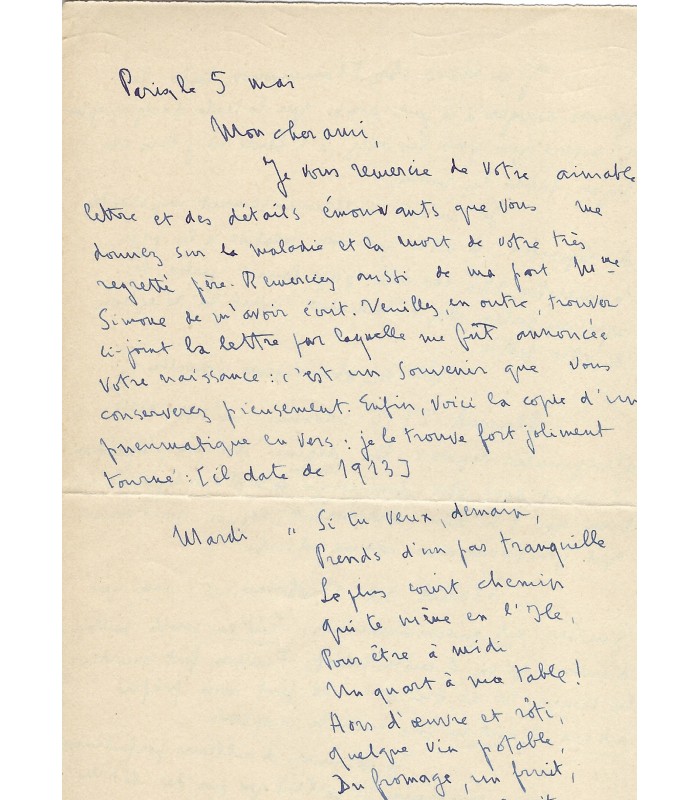 Paris, le 5 mai
Mon cher ami,
Je vous remercie de votre aimable
lettre et des détails émouvants que vous me
donnez sur la maladie et la mort de votre très
regretté père. Remerciez aussi de ma part Mme
Simone de m'avoir écrit. Veuillez, en outre, trouver
ci-joint la lettre par laquelle me fût annoncée
votre naissance : c'est un souvenir que vous
conserverez pieusement. Enfin, voici la copie d'un
pneumatique en vers : je le trouve fort joliment
tourné : [il date de 1913]
Mardi " Si tu veux, demain,
Prends d'un pas tranquille
Le plus court chemin
Qui te mène en l'Ile,
Pour être à midi
Un quart à ma table !
Hors d'œuvre et rôti,
Quelque vin potable,
Du fromage, un fruit,